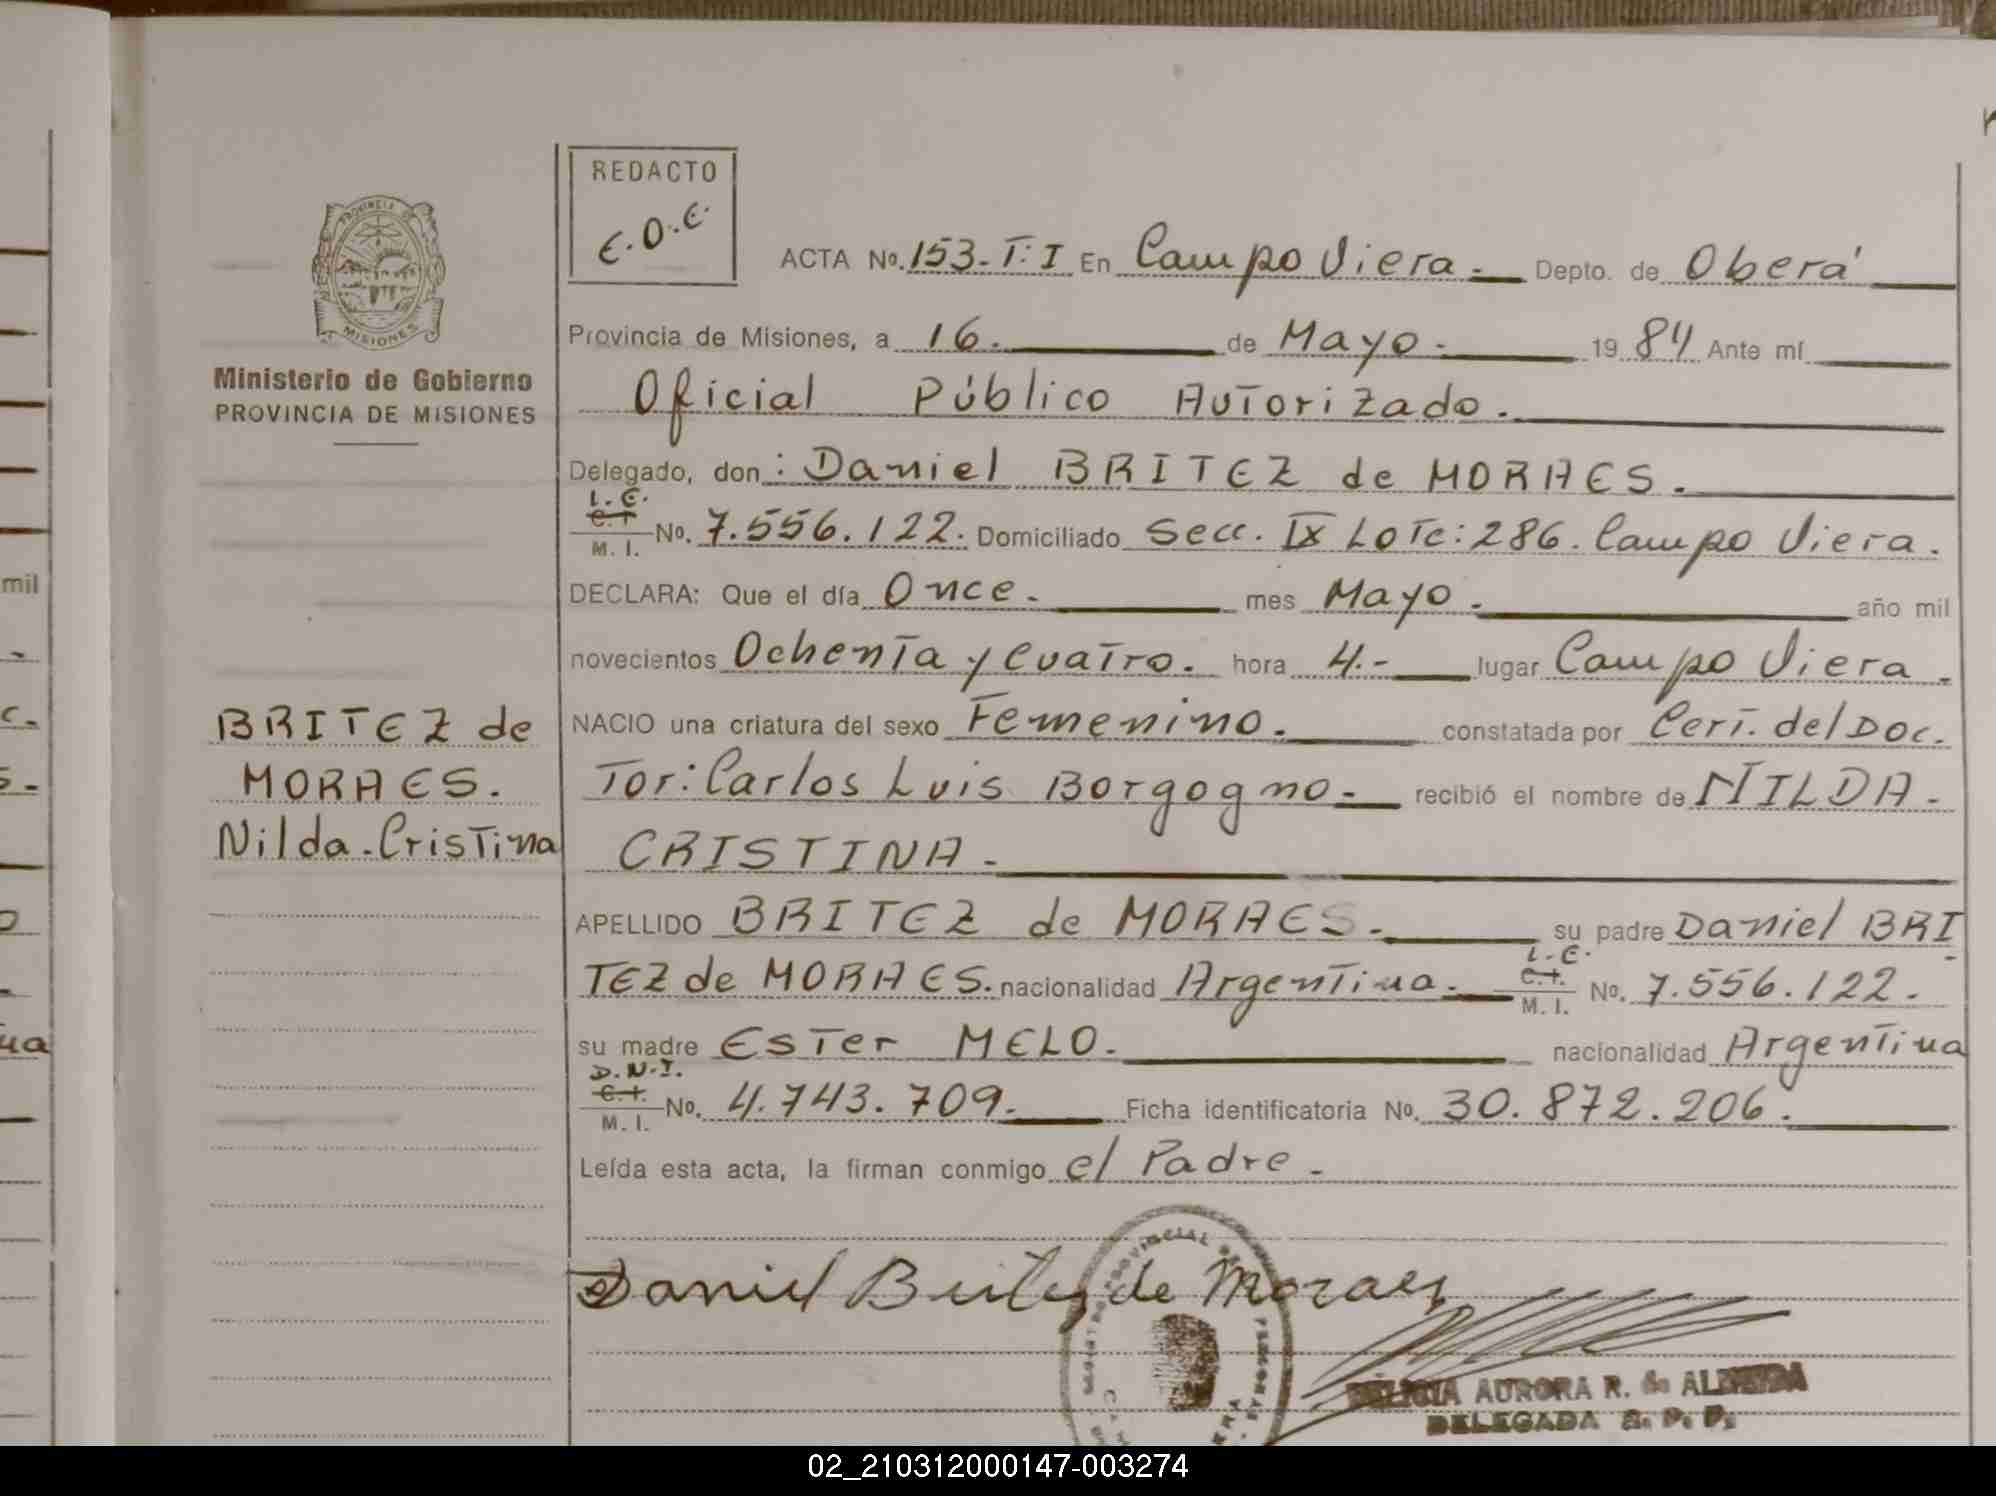 REDACTO
E.O.E.
PROVINCIA DE
MISIONES
Ministerio de Gobierno
PROVINCIA DE MISIONES
ACTA No. 153-T:I En Campo Viera.- Depto. de Oberá
Provincia de Misiones, a 16. de Mayo. 19 84 Ante mí
Oficial Público Autorizado.
Delegado, don: Daniel BRITEZ de MORAES.
L.E.
C.I.
M. I. No. 7.556.122. Domiciliado Secc. IX Lote: 286. Campo Viera.
DECLARA: Que el día Once. mes Mayo. año mil
novecientos Ochenta y Cuatro. hora 4.- lugar Campo Viera.
NACIO una criatura del sexo Femenino. constatada por Cert. del Doc.
Tor: Carlos Luis Borgogno.- recibió el nombre de NILDA.
CRISTINA.
BRITEZ de
MORAES.
Nilda.Cristina
APELLIDO BRITEZ de MORAES.- su padre Daniel BRI
TEZ de MORAES. nacionalidad Argentina.
L.E.
C.I.
M. I. No. 7.556.122.
su madre Ester MELO. nacionalidad Argentina
D.N.I.
C.I.
M. I. No. 4.743.709. Ficha identificatoria No. 30.872.206.
Leída esta acta, la firman conmigo el Padre.
Daniel Britez de Moraes
AURORA R. de ALMEIDA
DELEGADA R. P. P.
mil
02_210312000147-003274